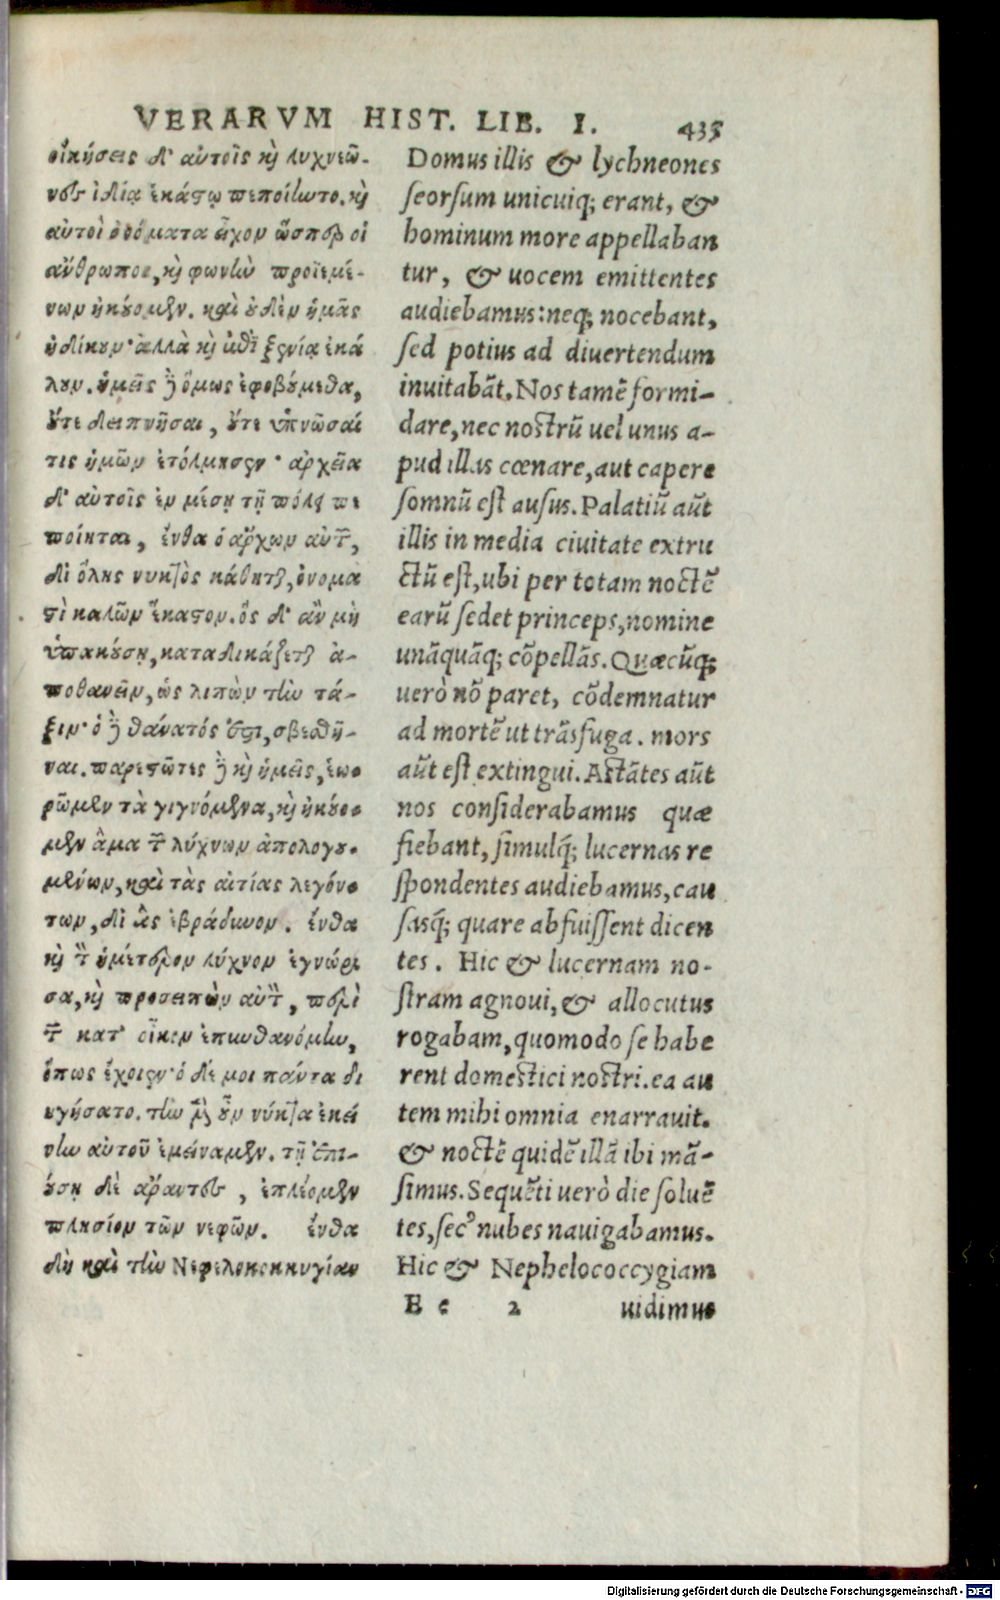 VERARVM HIST. LIB. I. 435
οἰκήσεις δ' αὐτοῖς κὶ λυχνεῶ-
νες ἰδίᾳ ἑκάστῳ πεποίηντο. κὶ
αὐτοὶ ὀνόματα εἶχον ὥσπερ οἱ
ἄνθρωποι, κὶ φωνὴν προϊεμέ-
νων ἠκούομεν. καὶ οὐδὲν ἡμᾶς
ἠδίκουν· ἀλλὰ κὶ ἐπὶ ξενίᾳ ἐκά
λουν. ἡμεῖς δὲ ὅμως ἐφοβούμεθα,
οὔτε δειπνῆσαι, οὔτε ὑπνῶσαί
τις ἡμῶν ἐτόλμησεν· ἀρχεῖα
δ' αὐτοῖς ἐν μέσῃ τῇ πόλει πε
ποίηται, ἔνθα ὁ ἄρχων αὐτῶν,
δι ὅλης νυκτὸς κάθηται, ὀνομα
στὶ καλῶν ἕκαστον. ὃς δ' ἂν μὴ
ὑπακούσῃ, καταδικάζεται ἀ-
ποθανεῖν, ὡς λιπὼν τὴν τά-
ξιν· ὁ δὲ θάνατός ἐστι, σβεσθῆ-
ναι. παρεστῶτες δὲ κὶ ἡμεῖς, ἑω
ρῶμεν τὰ γιγνόμενα, κὶ ἠκούο
μεν ἅμα τῶν λύχνων ἀπολογου
μένων, καὶ τὰς αἰτίας λεγόν
των, δι ἃς ἐβράδυνον. ἔνθα
κὶ τὸν ἡμέτερον λύχνον ἐγνώρι
σα, κὶ προσειπὼν αὐτὸν, περὶ
τῶν κατ' οἶκον ἐπυνθανόμην,
ὅπως ἔχοιεν· ὁ δέ μοι πάντα δι
ηγήσατο. τὴν μὲν οὖν νύκτα ἐκεί
νην αὐτοῦ ἐμείναμεν. τῇ ἐπι-
ούσῃ δὲ ἄραντες, ἐπλέομεν
πλησίον τῶν νεφῶν. ἔνθα
δὴ καὶ τὴν Νεφελοκοκκυγίαν
Domus illis & lychneones
seorsum unicuiq; erant, &
hominum more appellaban
tur, & uocem emittentes
audiebamus: neq; nocebant,
sed potius ad diuertendum
inuitabãt. Nos tamẽ formi-
dare, nec nostrũ uel unus a-
pud illas cœnare, aut capere
somnũ est ausus. Palatiũ aũt
illis in media ciuitate extru
ctũ est, ubi per totam noctẽ
earũ sedet princeps, nomine
unãquãq; cõpellãs. Quæcũq;
uerò nõ paret, cõdemnatur
ad mortẽ ut trãsfuga. mors
aũt est extingui. Astãtes aũt
nos considerabamus quæ
fiebant, simulq́; lucernas re
spondentes audiebamus, cau
sasq́; quare abfuissent dicen
tes. Hic & lucernam no-
stram agnoui, & allocutus
rogabam, quomodo se habe
rent domestici nostri. ea au
tem mihi omnia enarrauit.
& noctẽ quidẽ illã ibi mã-
simus. Sequẽti uerò die soluẽ
tes, secꝰ nubes nauigabamus.
Hic & Nephelococcygiam
E e 2 uidimus
Digitalisierung gefördert durch die Deutsche Forschungsgemeinschaft - DFG